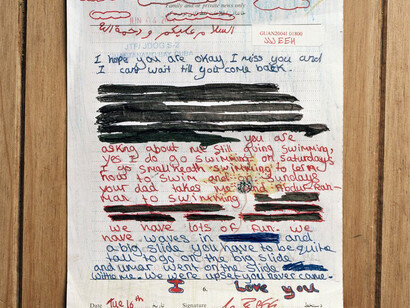 Family and or private news only
GUANZOIMO 01600
JTFI JDOG S-2
I hope you are okay I miss you and
I cant wait till you come back.
you are
asking about me still going swimming,
yes I do go swimming on Saturdays
to learn
how to swim and on Sundays
your dad takes me and Abdur Rah-
man to swimming
we have lots of fun. we
have waves in and
a big slide you have to be quite
tall to go on the big slide
and umar went on the slide
with me. we were upset you never came.
I love you
6.
Date Tue 10th Signature